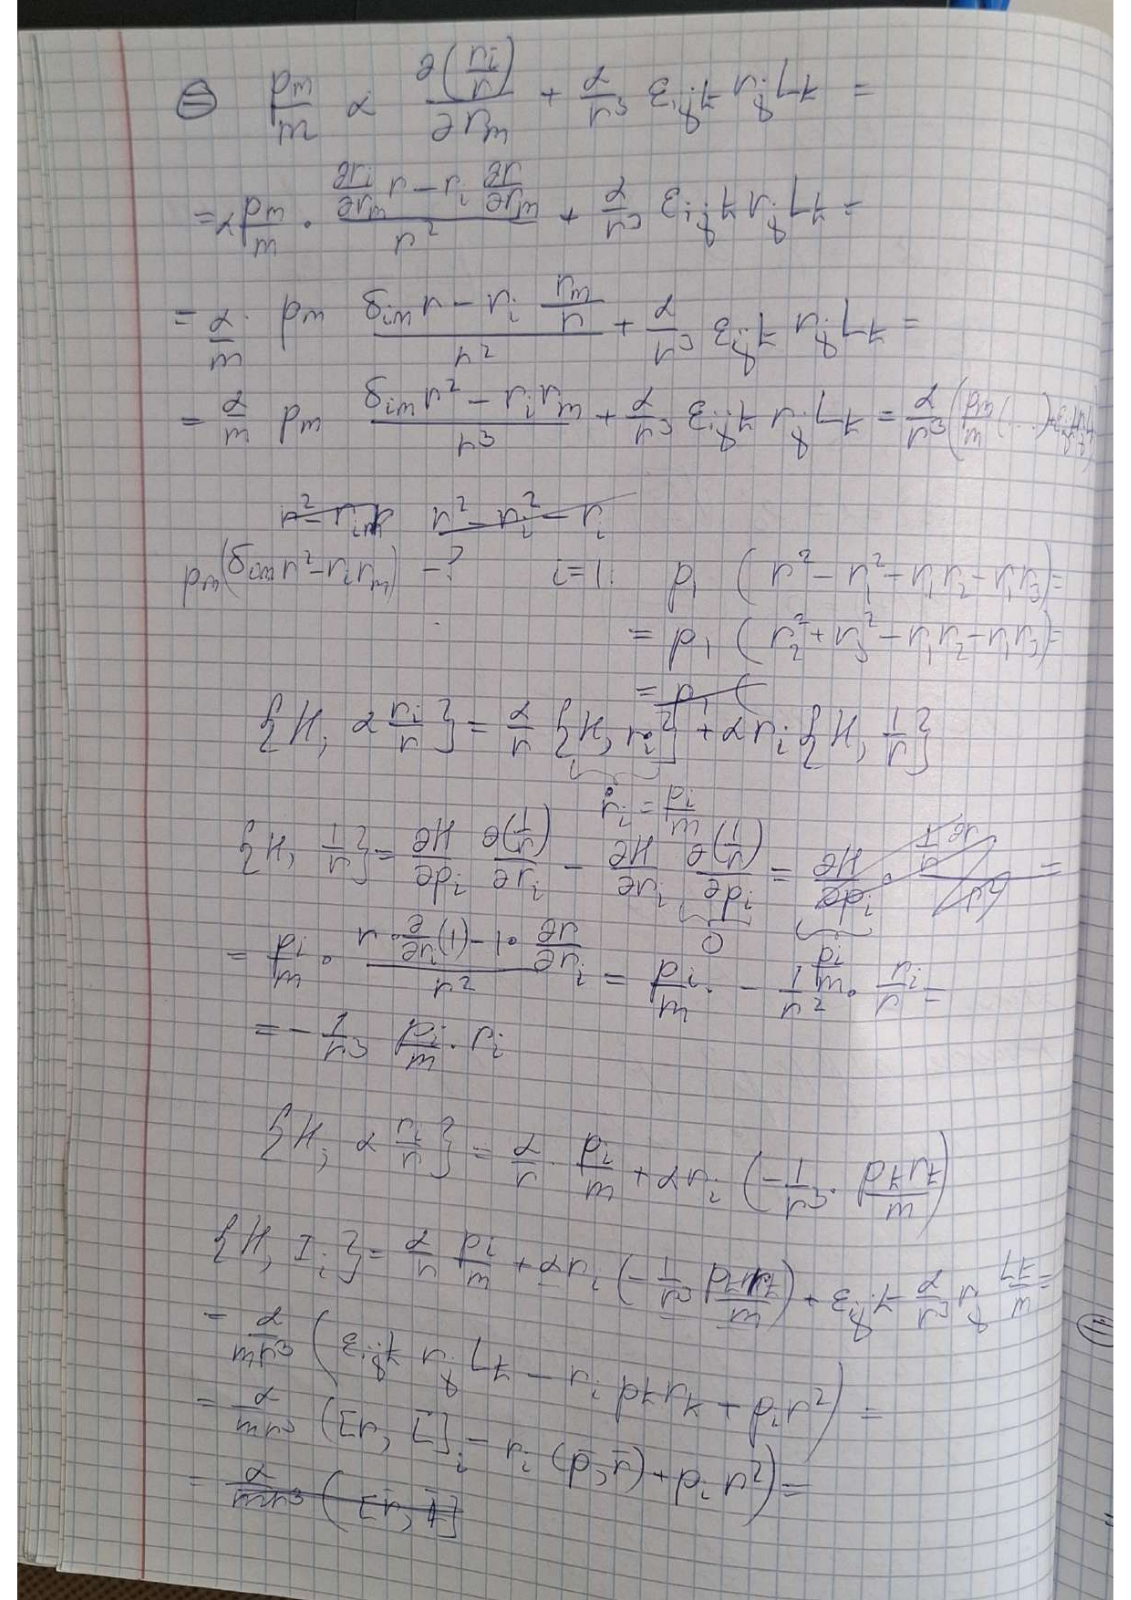 ⊜ p_m/m α ∂(r_i/r)/∂r_m + α/r³ ε_ijk r_j L_k =
= α p_m/m · (∂r_i/∂r_m r − r_i ∂r/∂r_m)/r² + α/r³ ε_ijk r_j L_k =
= α/m · p_m (δ_im r − r_i r_m/r)/r² + α/r³ ε_ijk r_j L_k =
= α/m p_m (δ_im r² − r_i r_m)/r³ + α/r³ ε_ijk r_j L_k = α/r³ (p_m/m (...)
r² − r_i² − r_i
p_m(δ_im r² − r_i r_m) − ? i=1: p_1 (r² − r_1² − r_1 r_2 − r_1 r_3) =
= p_1 (r_2² + r_3² − r_1 r_2 − r_1 r_3) =
= p_1 (
{H, α r_i/r} = α/r {H, r_i} + α r_i {H, 1/r}
ṙ_i = p_i/m
{H, 1/r} = ∂H/∂p_i ∂(1/r)/∂r_i − ∂H/∂r_i ∂(1/r)/∂p_i = ∂H/∂p_i · =
0 p_i/m
= p_i/m · (r · ∂/∂r_i (1) − 1 · ∂r/∂r_i)/r² = p_i/m · − 1/r² · r_i/r =
= − 1/r³ p_i/m · r_i
{H, α r_i/r} = α/r · p_i/m + α r_i (− 1/r³ · p_k r_k/m)
{H, I_i} = α/r p_i/m + α r_i (− 1/r³ p_k r_k/m) + ε_ijk α/r³ r_j L_k/m =
= α/mr³ (ε_ijk r_j L_k − r_i p_k r_k + p_i r²) =
= α/mr³ ([r, L]_i − r_i (p̄, r̄) + p_i r²) =
= α/mr³ ([r̄, L̄]